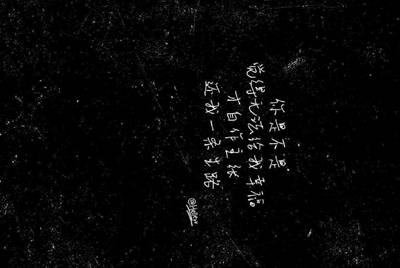 你是不是
觉得无法给我幸福
才自作主张
还我一条生路